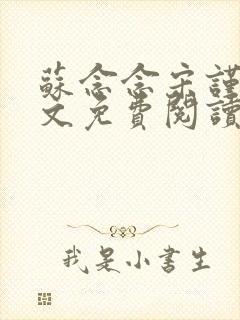 蘇念念宋謹
文免費閱讀
我是小書生